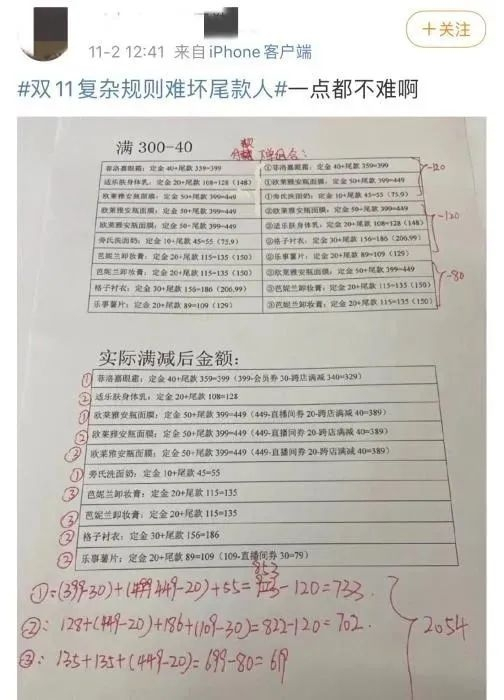 +关注
11-2 12:41 来自iPhone客户端
#双11复杂规则难坏尾款人#一点都不难啊
满 300-40
下单组合：
菲洛嘉眼霜：定金 40+尾款 359=399
①菲洛嘉眼霜：定金 40+尾款 359=399
适乐肤身体乳：定金 20+尾款 108=128（148）
①欧莱雅安瓶面膜：定金 50+尾款 399=449
欧莱雅安瓶面膜：定金 50+尾款 399=449
①旁氏洗面奶：定金 10+尾款 45=55（75.9）
欧莱雅安瓶面膜：定金 50+尾款 399=449
②欧莱雅安瓶面膜：定金 50+尾款 399=449
欧莱雅安瓶面膜：定金 50+尾款 399=449
②适乐肤身体乳：定金 20+尾款 108=128（148）
旁氏洗面奶：定金 10+尾款 45=55（75.9）
②格子衬衣：定金 30+尾款 156=186（206.99）
芭妮兰卸妆膏：定金 20+尾款 115=135（150）
②乐事薯片：定金 20+尾款 89=109（129）
芭妮兰卸妆膏：定金 20+尾款 115=135（150）
③欧莱雅安瓶面膜：定金 50+尾款 399=449
格子衬衣：定金 30+尾款 156=186（206.99）
③芭妮兰卸妆膏：定金 20+尾款 115=135（150）
乐事薯片：定金 20+尾款 89=109（129）
③芭妮兰卸妆膏：定金 20+尾款 115=135（150）
-120
-120
-80
实际满减后金额：
① 菲洛嘉眼霜：定金 40+尾款 359=399（399-会员券 30-跨店满减 340=329）
② 适乐肤身体乳：定金 20+尾款 108=128
① 欧莱雅安瓶面膜：定金 50+尾款 399=449（449-直播间券 20-跨店满减 40=389）
② 欧莱雅安瓶面膜：定金 50+尾款 399=449（449-直播间券 20-跨店满减 40=389）
欧莱雅安瓶面膜：定金 50+尾款 399=449（449-直播间券 20-跨店满减 40=389）
① 旁氏洗面奶：定金 10+尾款 45=55
③ 芭妮兰卸妆膏：定金 20+尾款 115=135
③ 芭妮兰卸妆膏：定金 20+尾款 115=135
② 格子衬衣：定金 30+尾款 156=186
② 乐事薯片：定金 20+尾款 89=109（109-直播间券 30=79）
①=(399-30)+(449-20)+55=853-120=733.
②：128+(449-20)+186+(109-30)=822-120=702.
③：135+135+(449-20)=699-80=619
2054